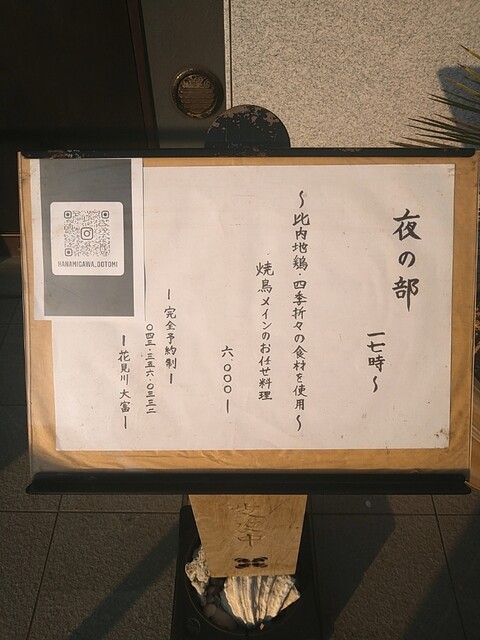 夜の部
一七時〜
〜比内地鶏・四季折々の食材を使用〜
焼鳥メインのお任せ料理
六、〇〇〇ー
ー完全予約制ー
〇四三・三五六・〇三三二
ー花見川 大富ー
HANAMIGAWA_OOTOMI
支度中